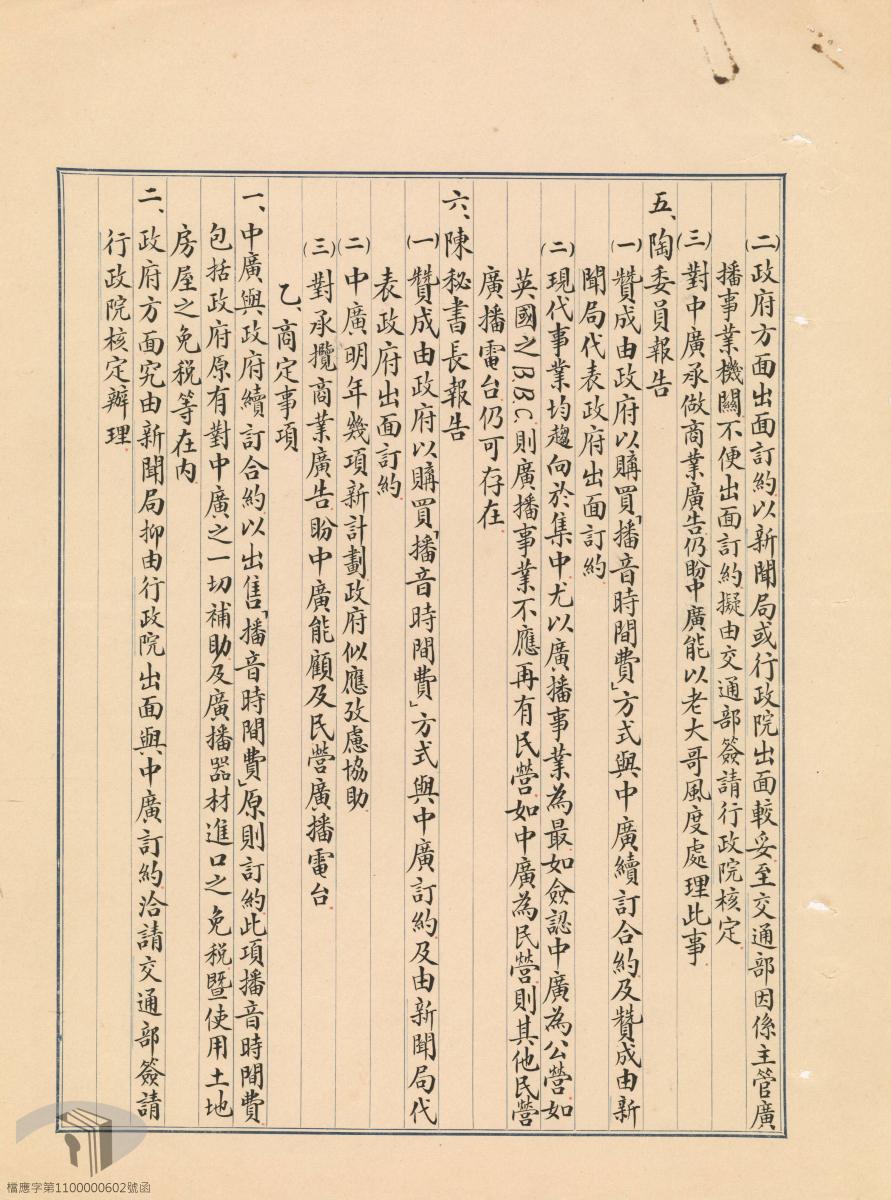 (二)政府方面出面訂約以新聞局或行政院出面較妥至交通部因係主管廣
播事業機關不便出面訂約擬由交通部簽請行政院核定
(三)對中廣承做商業廣告仍盼中廣能以老大哥風度處理此事
五、陶委員報告
(一)贊成由政府以購買「播音時間費」方式與中廣續訂合約及贊成由新
聞局代表政府出面訂約
(二)現代事業均趨向於集中尤以廣播事業為最如僉認中廣為公營如
英國之B.B.C.則廣播事業不應再有民營如中廣為民營則其他民營
廣播電台仍可存在
六、陳秘書長報告
(一)贊成由政府以購買「播音時間費」方式與中廣訂約及由新聞局代
表政府出面訂約
(二)中廣明年幾項新計劃政府似應攷慮協助
(三)對承攬商業廣告盼中廣能顧及民營廣播電台
乙、商定事項
一、中廣與政府續訂合約以出售「播音時間費」原則訂約此項播音時間費
包括政府原有對中廣之一切補助及廣播器材進口之免稅暨使用土地
房屋之免稅等在內
二、政府方面究由新聞局抑由行政院出面與中廣訂約洽請交通部簽請
行政院核定辦理
檔應字第1100000602號函